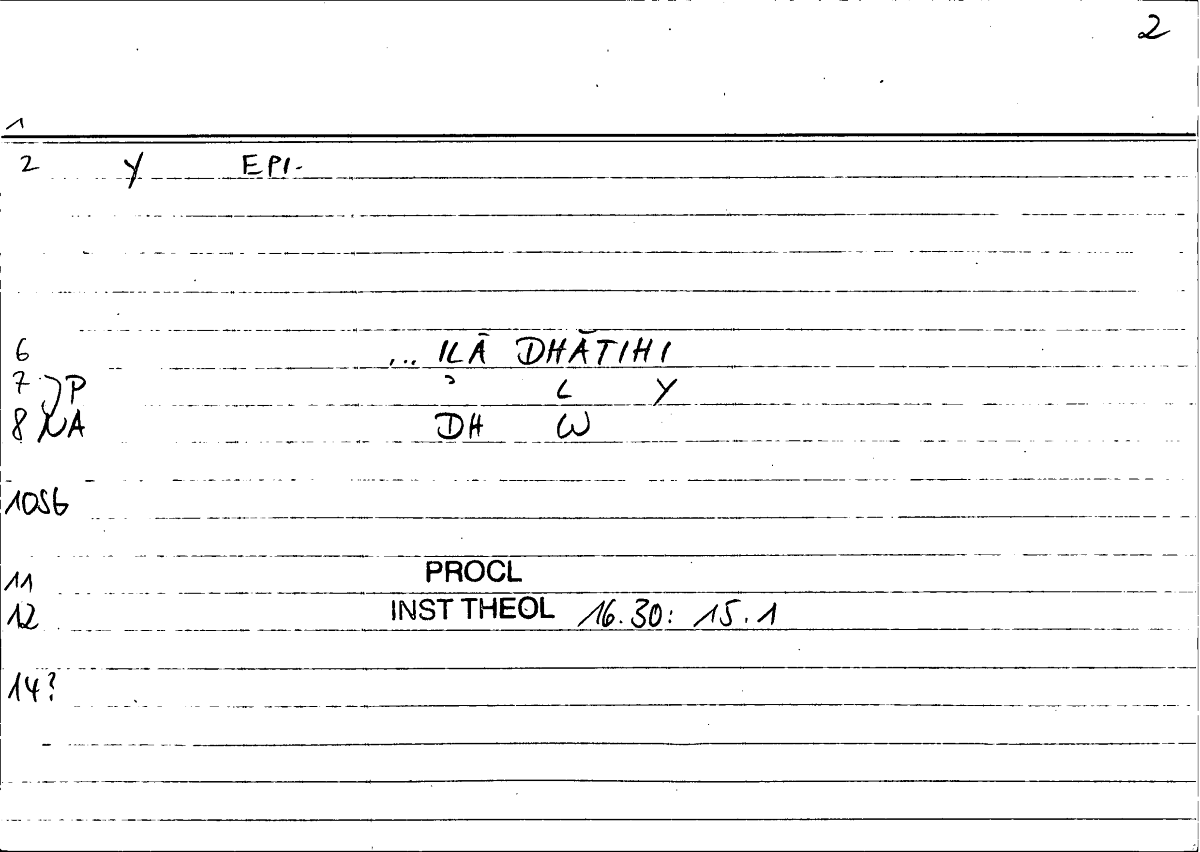 2
1
2 Y EPI-
6 ... ILĀ DHĀTIHI
7 P ʾ L Y
8 NA DH W
10SG
11 PROCL
12 INST THEOL 16.30: 15.1
14?